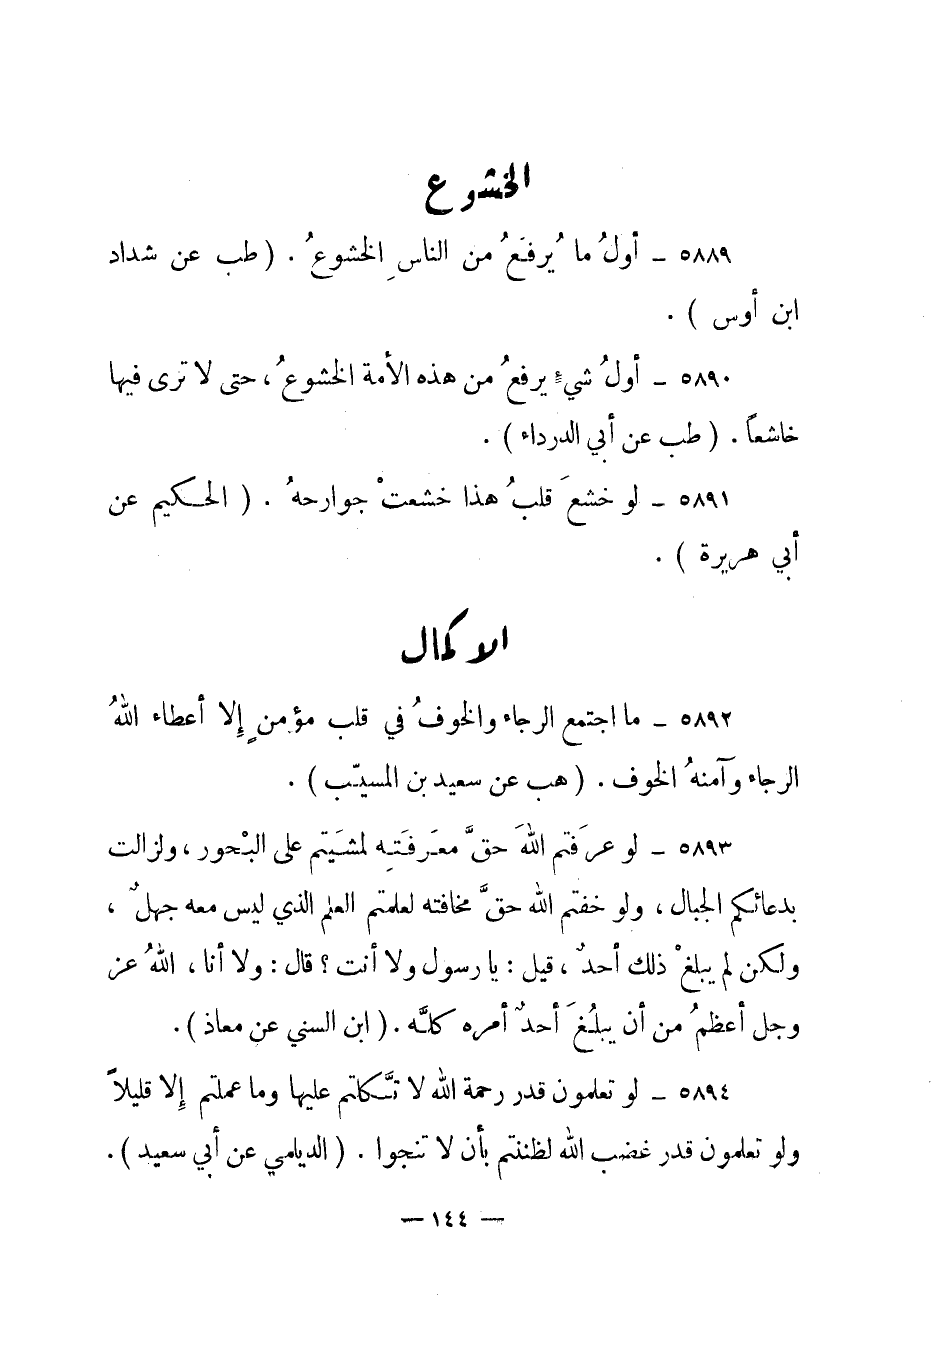 الخشوع
٥٨٨٩ - أولُ ما يُرفَعُ من الناسِ الخشوعُ . ( طب عن شداد
ابن أوس ) .
٥٨٩٠ - أولُ شيءٍ يرفعُ من هذه الأمة الخشوعُ ، حتى لا ترى فيها
خاشعاً . ( طب عن أبي الدرداء ) .
٥٨٩١ - لو خشعَ قلبُ هذا خشعتْ جوارحهُ . ( الحكيم عن
أبي هريرة ) .
الاكمال
٥٨٩٢ - ما اجتمع الرجاء والخوفُ في قلب مؤمنٍ إلا أعطاء اللهُ
الرجاء وآمنهُ الخوف . ( هب عن سعيد بن المسيّب ) .
٥٨٩٣ - لو عرَفتم اللهَ حقَّ معرَفَتِه لمشَيَتم على البْحور ، ولزالت
بدعائكم الجبال ، ولو خفتم الله حقَّ مخافته لعلمتم العلم الذي ليس معه جهلٌ ،
ولكن لم يبلغْ ذلك أحدٌ ، قيل : يا رسول ولا أنت ؟ قال : ولا أنا ، اللهُ عز
وجل أعظمُ من أن يبلُغَ أحدٌ أمره كلَّه . ( ابن السني عن معاذ ) .
٥٨٩٤ - لو تعلمون قدر رحمة الله لا تَّكلتم عليها وما عملتم إلا قليلاً
ولو تعلمون قدر غضب الله لظننتم بأن لا تنجوا . ( الديلمي عن أبي سعيد ) .
— ١٤٤ —